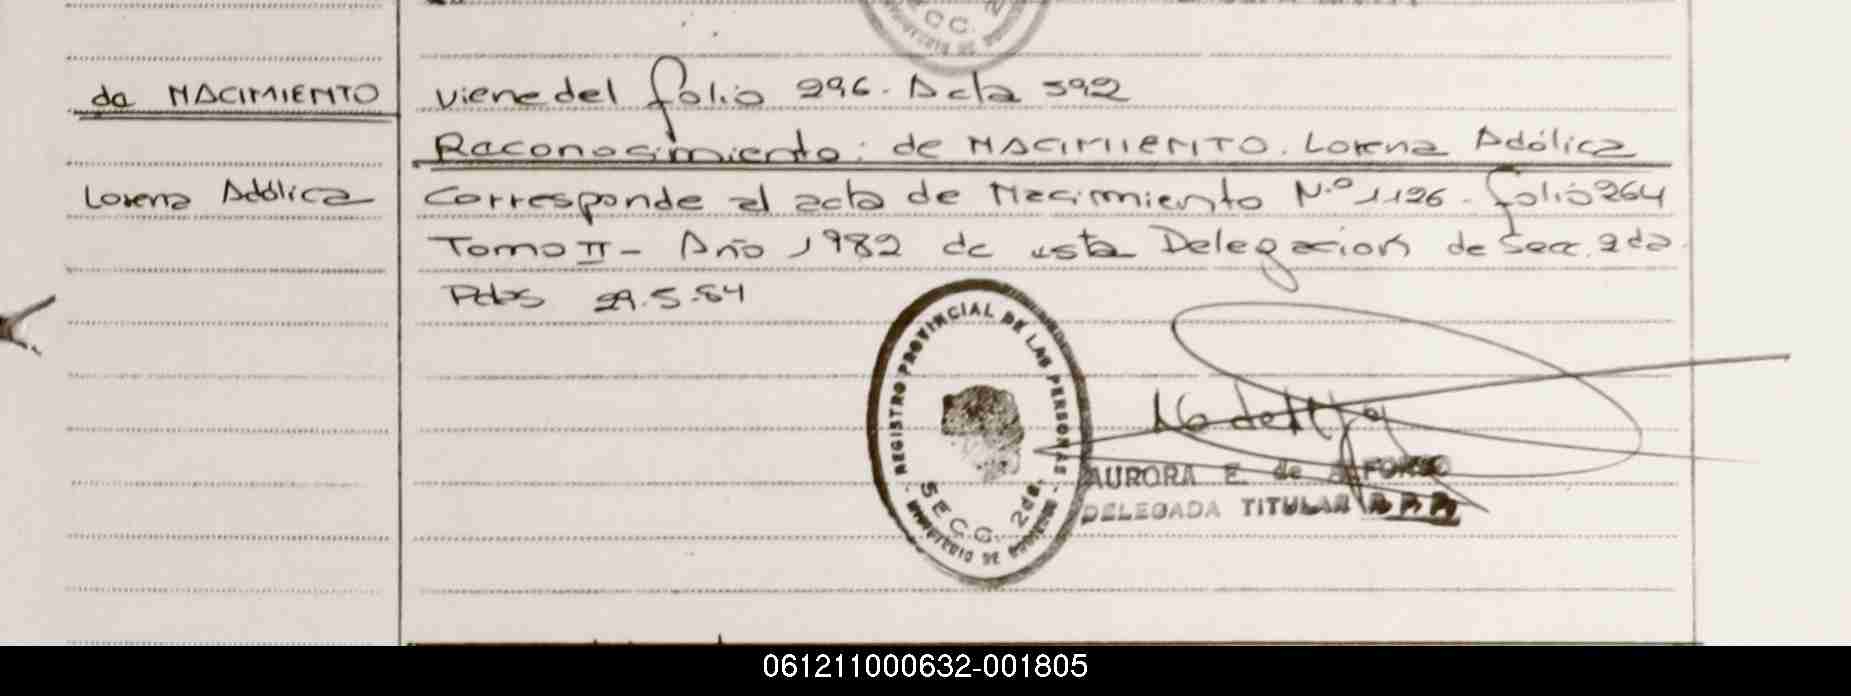 da NACIMIENTO
viene del folio 296. Acta 592
Raconocimiento: de NACIMIENTO. Lorena Adólica
Lorena Adólica
Corresponde al acta de Nacimiento N.º 1126. folio 264
Tomo II - Año 1982 de esta Delegacion de Secc. 2da.
Pdas 29.5.84
REGISTRO PROVINCIAL DE LAS PERSONAS
SECC. 2da.
MINISTERIO DE GOBIERNO
AURORA E. de
DELEGADA TITULAR
061211000632-001805